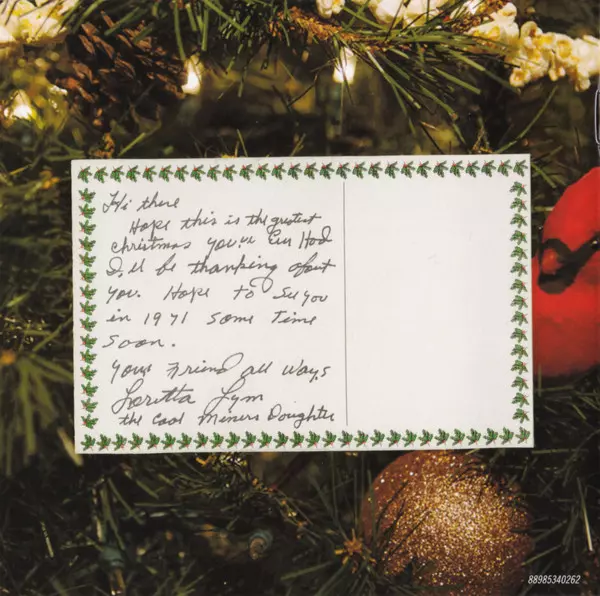 Hi there
Hope this is the greatest
christmas you've Ever Had
I,ll be thanking about
you. Hope to See you
in 1971 some Time
soon.
Your Friend all ways
Loretta Lynn
the Coal Miners Doughter
88985340262